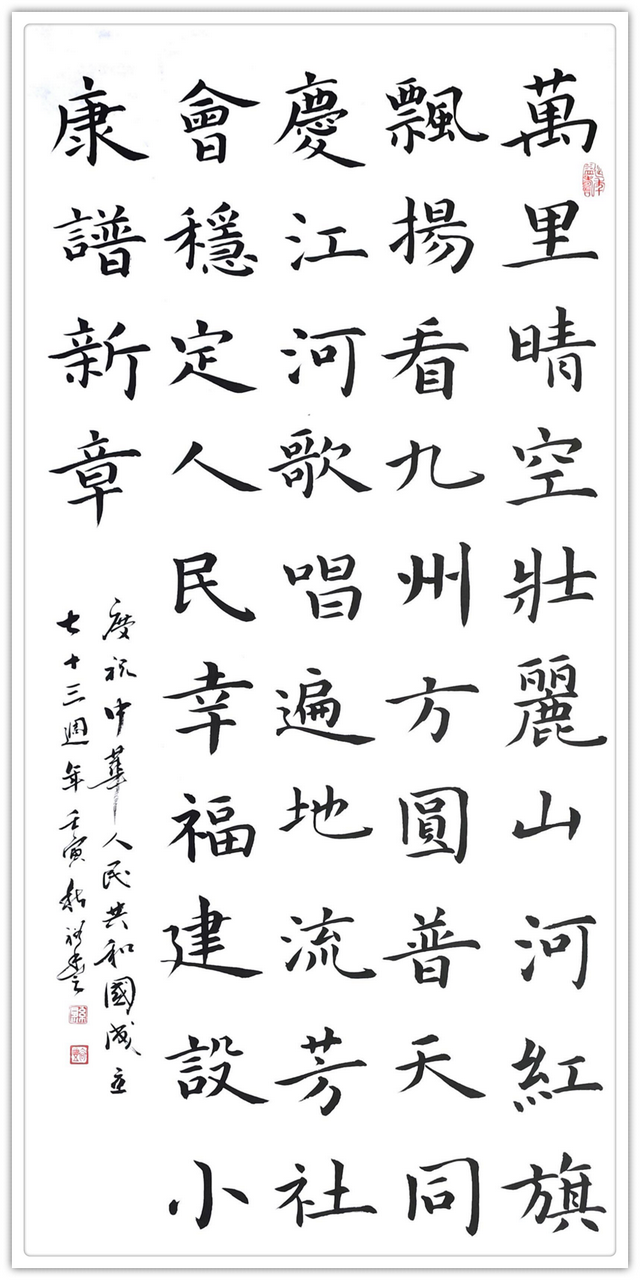 萬里晴空壯麗山河紅旗
飄揚看九州方圓普天同
慶江河歌唱遍地流芳社
會穩定人民幸福建設小
康譜新章
慶祝中華人民共和國成立
七十三週年壬寅秋